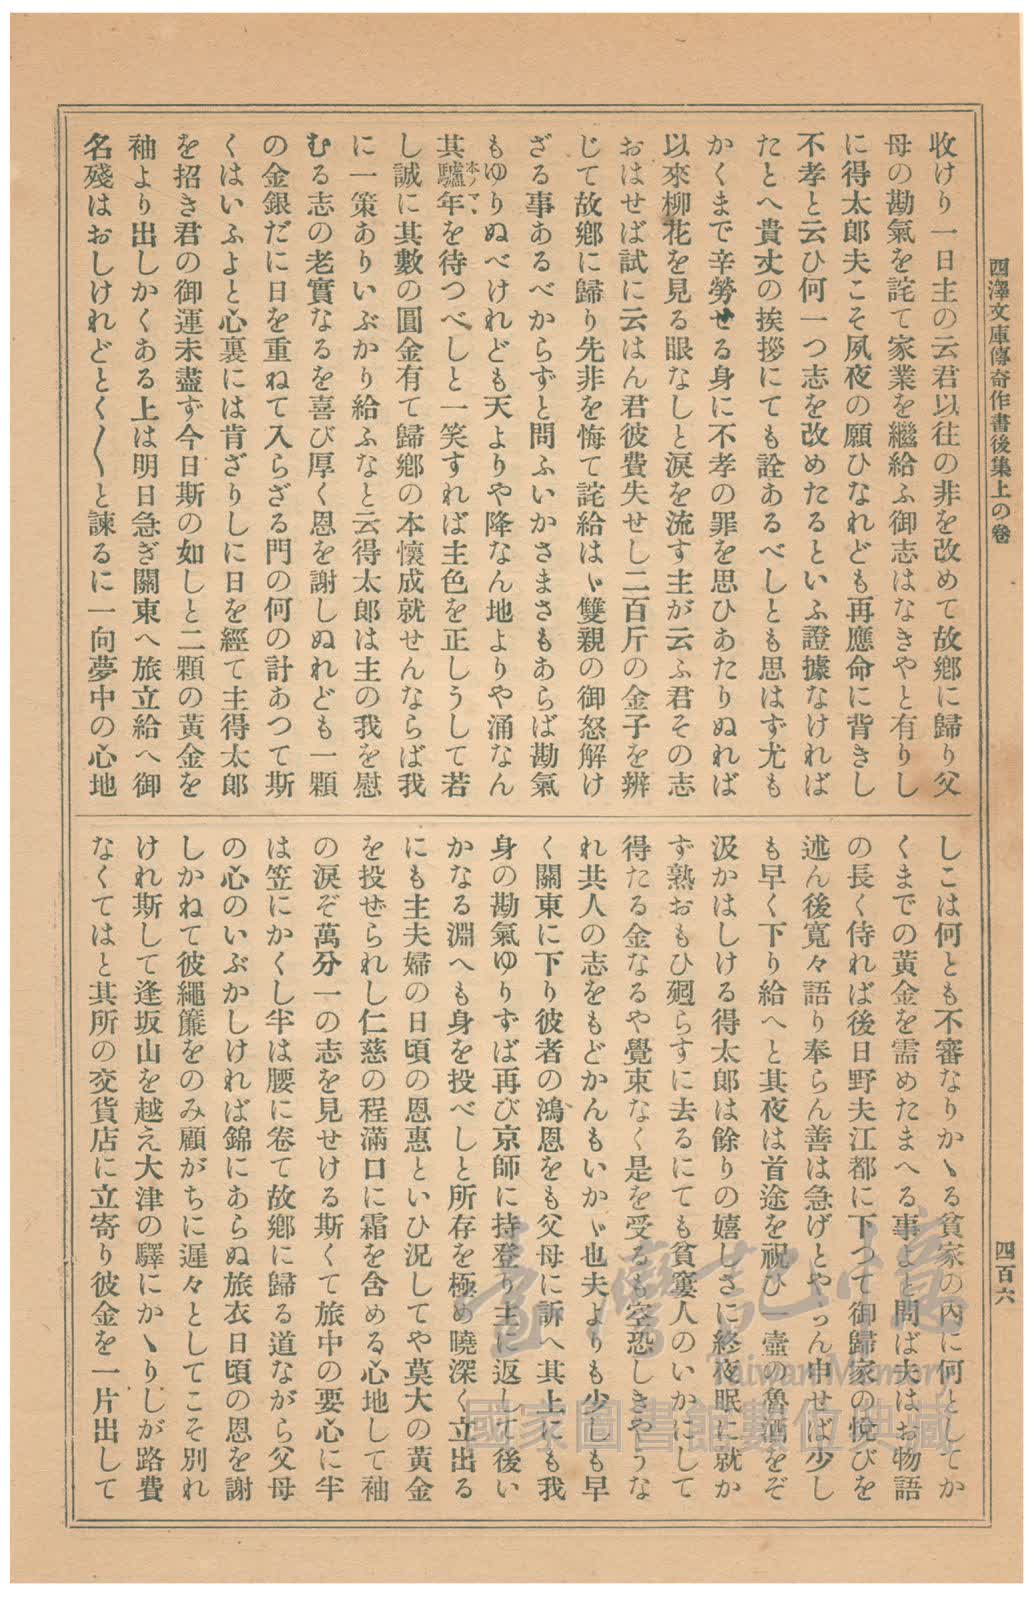 四澤文庫傳奇作書後集上の卷
四百六
收けり一日主の云君以往の非を改めて故鄕に歸り父
母の勘氣を詫て家業を繼給ふ御志はなきやと有りし
に得太郎夫こそ夙夜の願ひなれども再應命に背きし
不孝と云ひ何一つ志を改めたるといふ證據なければ
たとへ貴丈の挨拶にても詮あるべしとも思はず尤も
かくまで辛勞せる身に不孝の罪を思ひあたりぬれば
以來柳花を見る眼なしと淚を流す主が云ふ君その志
おはせば試に云はん君彼費失せし二百斤の金子を辨
じて故鄕に歸り先非を悔て詫給はゞ雙親の御怒解け
ざる事あるべからずと問ふいかさまさもあらば勘氣
もゆりぬべけれども天よりや降なん地よりや涌なん
其驢年を待つべしと一笑すれば主色を正しうして若
本ノマヽ
し誠に其數の圓金有て歸鄕の本懷成就せんならば我
に一策ありいぶかり給ふなと云得太郎は主の我を慰
むる志の老實なるを喜び厚く恩を謝しぬれども一顆
の金銀だに日を重ねて入らざる門の何の計あつて斯
くはいふよと心裏には肯ざりしに日を經て主得太郎
を招き君の御運未盡ず今日斯の如しと二顆の黃金を
袖より出しかくある上は明日急ぎ關東へ旅立給へ御
名殘はおしけれどとく〳〵と諫るに一向夢中の心地
しこは何とも不審なりかゝる貧家の內に何としてか
くまでの黃金を需めたまへる事よと問ば夫はお物語
の長く侍れば後日野夫江都に下つて御歸家の悅びを
述ん後寬々語り奉らん善は急げとやらん申せば少し
も早く下り給へと其夜は首途を祝ひ一壺の魯酒をぞ
汲かはしける得太郎は餘りの嬉しさに終夜眠に就か
ず熟おもひ廻らすに去るにても貧窶人のいかにして
得たる金なるや覺束なく是を受るも空恐しきやうな
れ共人の志をもどかんもいかゞ也夫よりも少しも早
く關東に下り彼者の鴻恩をも父母に訴へ其上にも我
身の勘氣ゆりずば再び京師に持登り主に返して後い
かなる淵へも身を投べしと所存を極め曉深く立出る
にも主夫婦の日頃の恩惠といひ況してや莫大の黃金
を投ぜられし仁慈の程滿口に霜を含める心地して袖
の淚ぞ萬分一の志を見せける斯くて旅中の要心に半
は笠にかくし半は腰に卷て故鄕に歸る道ながら父母
の心のいぶかしければ錦にあらぬ旅衣日頃の恩を謝
しかねて彼繩簾をのみ顧がちに遲々としてこそ別れ
けれ斯して逢坂山を越え大津の驛にかゝりしが路費
なくてはと其所の交貨店に立寄り彼金を一片出して
臺灣記憶
Taiwan Memory
國家圖書館數位典藏